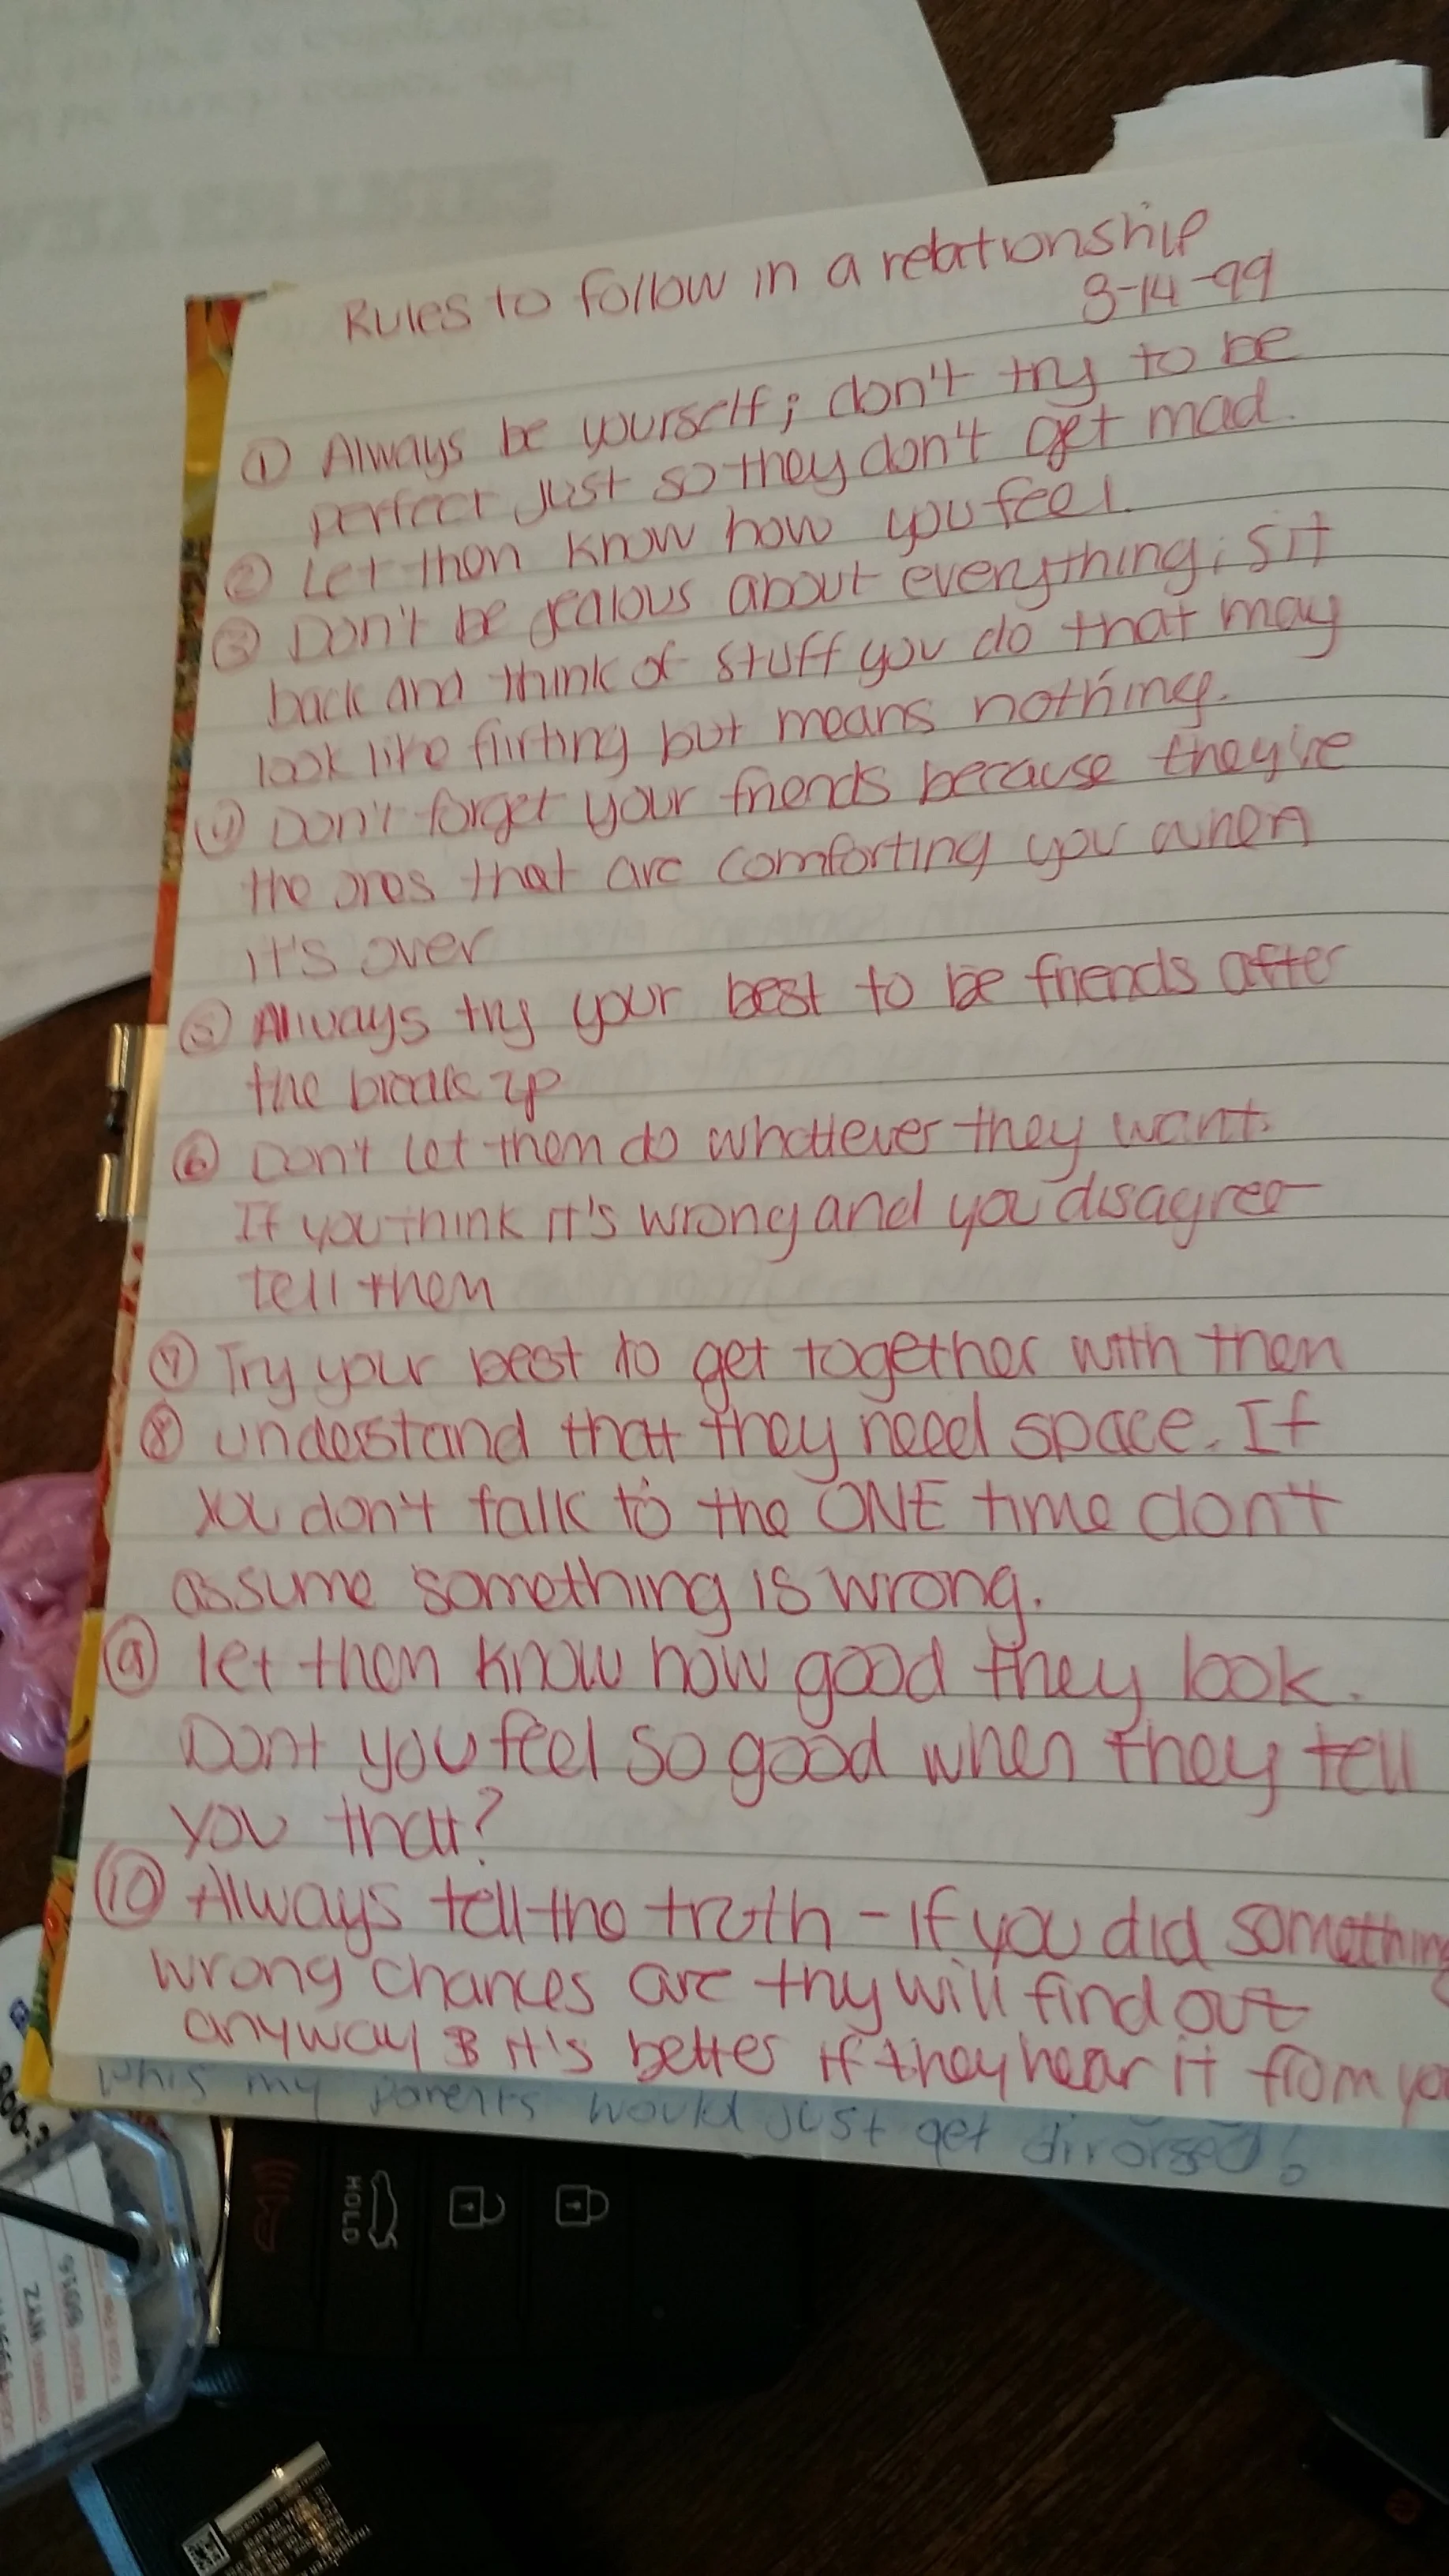 Rules to follow in a relationship
8-14-99
① Always be yourself; don't try to be
perfect just so they don't get mad.
② Let them know how you feel.
③ Don't be jealous about everything; sit
back and think of stuff you do that may
look like flirting but means nothing.
④ Don't forget your friends because they're
the ones that are comforting you when
it's over
⑤ Always try your best to be friends after
the break up
⑥ Don't let them do whatever they want.
If you think it's wrong and you disagree
tell them
⑦ Try your best to get together with them
⑧ understand that they need space. If
you don't talk to the ONE time don't
assume something is wrong.
⑨ let them know how good they look.
Dont you feel so good when they tell
you that?
⑩ Always tell the truth - if you did something
wrong chances are thy will find out
anyway & it's better if they hear it from yo
my parents would just get divorsed!
HOLD